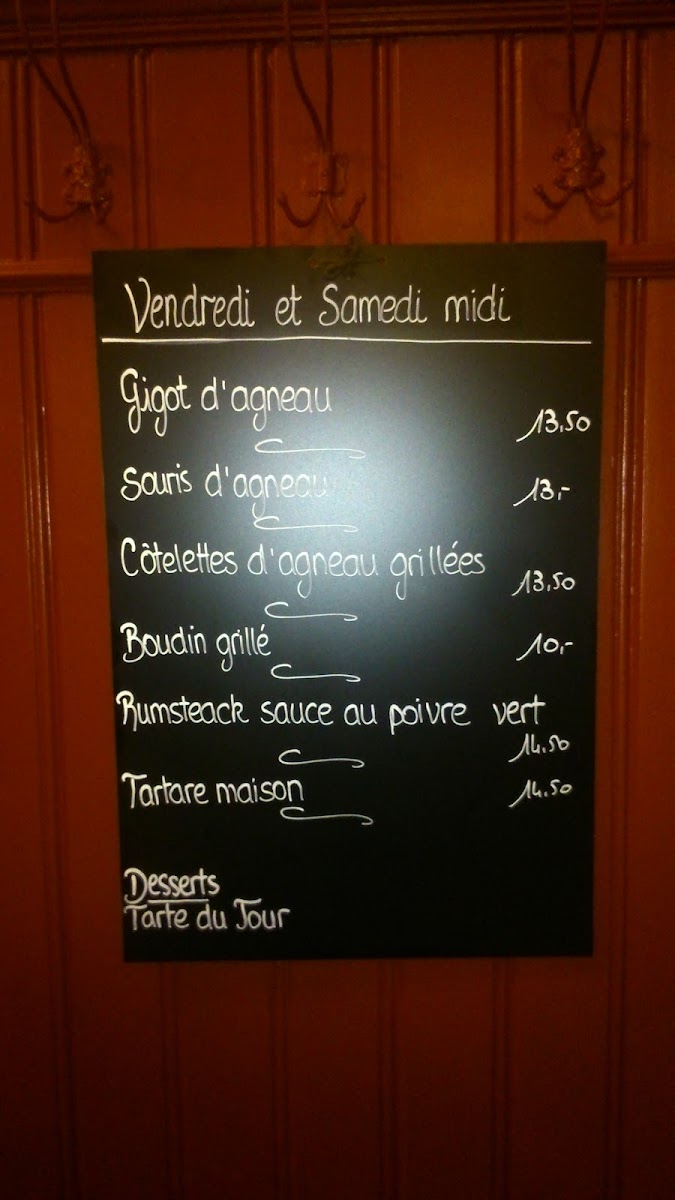 Vendredi et Samedi midi
Gigot d'agneau
13,50
Souris d'agneau
13,-
Côtelettes d'agneau grillées
13,50
Boudin grillé
10,-
Rumsteack sauce au poivre vert
14.50
Tartare maison
14.50
Desserts
Tarte du Jour